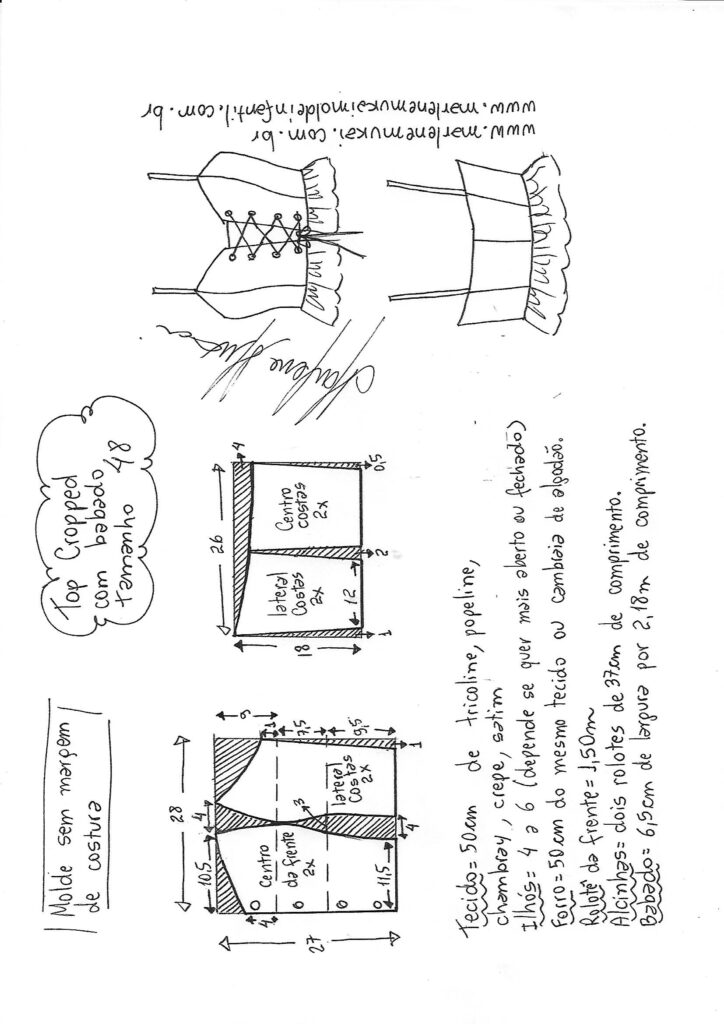 Molde sem margem
de costura
Top Cropped
com babado
tamanho 48
www.marlenemukai.com.br
www.marlenemukaimoldeinfantil.com.br
Marlene Mukai
28
10,5
4
9
27
4
Centro
da frente
2x
3
lateral
Costas
2x
1
7,5
9,5
11,5
4
1
26
4
18
lateral
Costas
2x
Centro
costas
2x
12
1
2
0,5
Tecido=50cm de tricoline, popeline,
chambray, crepe, satim
Ilhós= 4 a 6 (depende se quer mais aberto ou fechado)
Forro=50cm do mesmo tecido ou cambraia de algodão.
Rolotê da frente=1,50m
Alcinhas= dois rolotes de 37cm de comprimento.
Babado= 6,5cm de largura por 2,18m de comprimento.